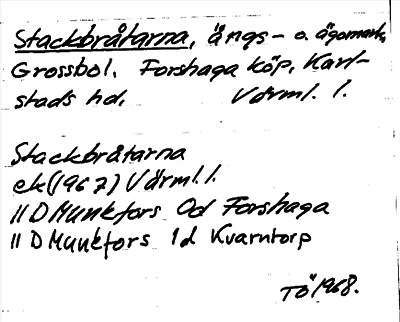 Stackbråtarna, ängs- o. ägomark,
Grossbol. Forshaga köp, Karl-
stads hd. Värml. l.
Stackbråtarna
ek (1967) Värml. l.
11 D Munkfors 0d Forshaga
11 D Munkfors 1d Kvarntorp
TÖ 1968.